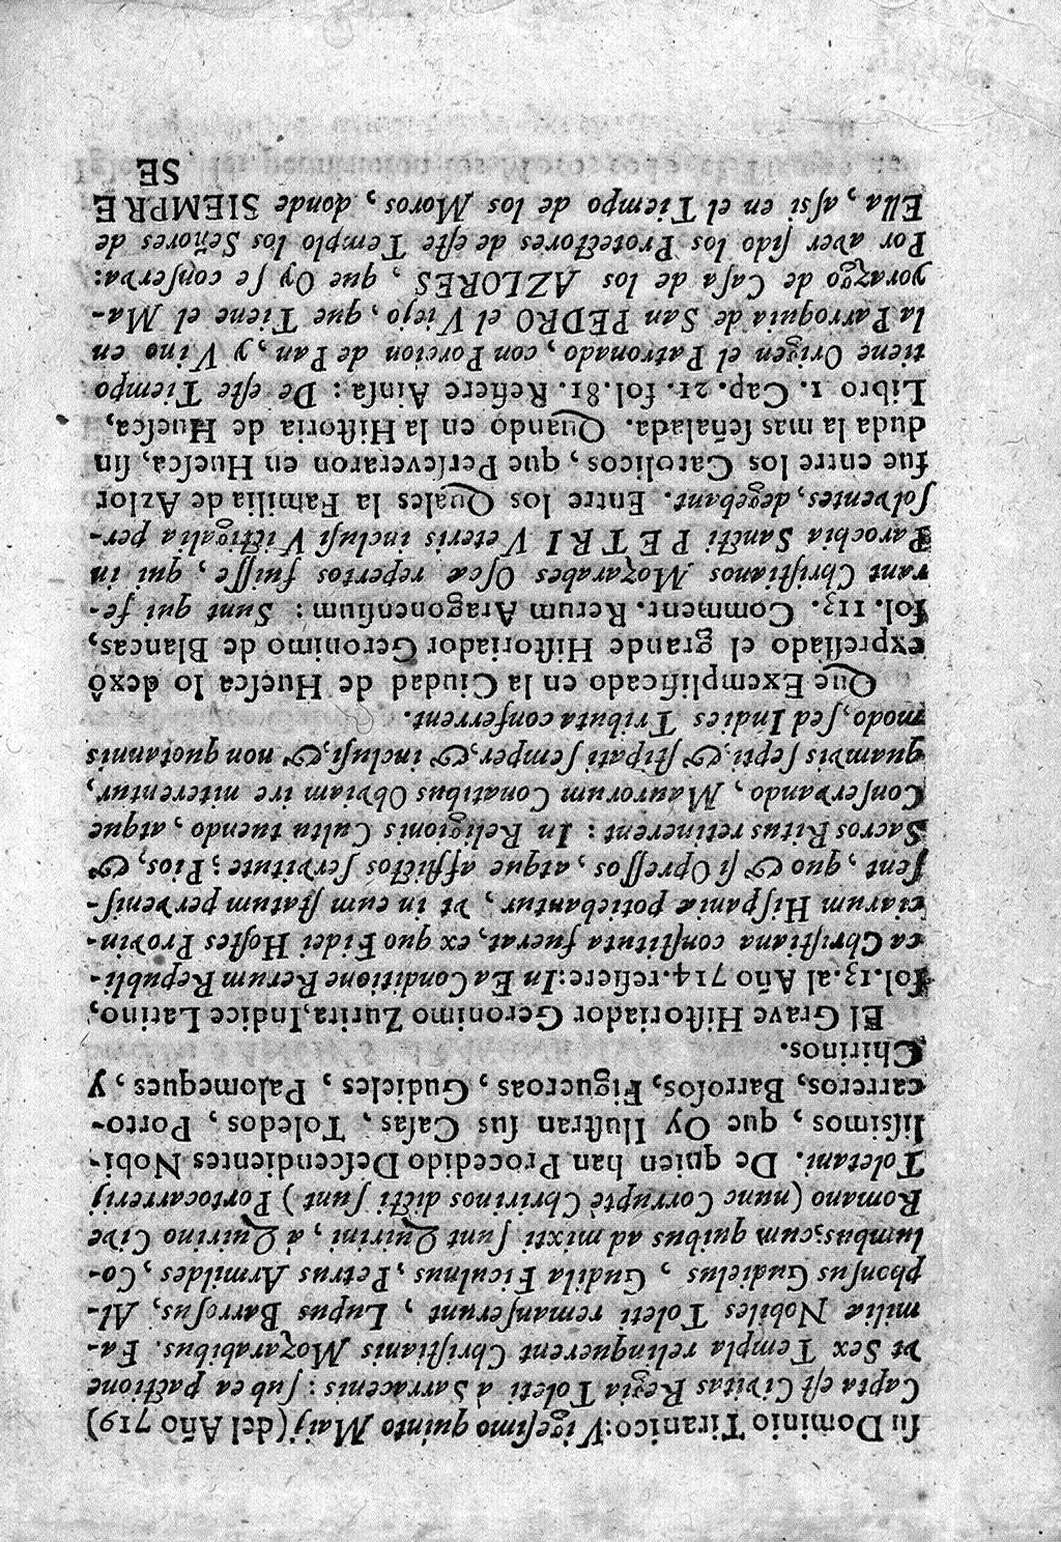 ſu Dominio Tiranico: Vigeſimo quinto Maij (del Año 719)
Capta eſt Civitas Regia Toleti à Sarracenis: ſub ea pactione
vt Sex Templa relinquerent Chriſtianis Mozarabibus. Fa-
miliæ Nobiles Toleti remanſerunt, Lupus Barroſus, Al-
phonſus Gudielus, Gudila Ficulnus, Petrus Armildes, Co-
lumbus; cum quibus ad mixti ſunt Quirini, à Quirino Cive
Romano (nunc Corruptè Chririnos dicti ſunt) Portocarrerij
Toletani. De quien han Procedido Deſcendientes Nobi-
liſsimos, que Oy Iluſtran ſus Caſas, Toledos, Porto-
carreros, Barroſos, Figueroas, Gudieles, Palomeques, y
Chirinos.
El Grave Hiſtoriador Geronimo Zurita, Indice Latino,
fol. 13. al Año 714. refiere: In Ea Conditione Rerum Republi-
ca Chriſtiana conſtituta fuerat, ex quo Fidei Hoſtes Provin-
ciarum Hiſpaniæ potiebantur, vt in eum ſtatum perveniſ-
ſent, quo & ſi Opreſſos, atque afflictos ſervitute; Pios, &
Sacros Ritus retinerent: In Religionis Cultu tuendo, atque
Conſervando, Maurorum Conatibus Obviam ire niterentur,
quamvis ſepti, & ſtipati ſemper, & incluſi, & non quotannis
modo, ſed Indies Tributa conferrent.
Que Exemplificado en la Ciudad de Hueſca lo dexò
expreſſado el grande Hiſtoriador Geronimo de Blancas,
fol. 113. Comment. Rerum Aragonenſium: Sunt qui fe-
rant Chriſtianos Mozarabes Oſcæ repertos fuiſſe, qui in
Parochia Sancti PETRI Veteris incluſi Victigalia per-
ſolventes, degebant. Entre los Quales la Familia de Azlor
fue entre los Catolicos, que Perſeveraron en Hueſca, ſin
duda la mas ſeñalada. Quando en la Hiſtoria de Hueſca,
Libro 1. Cap. 21. fol. 81. Refiere Ainſa: De eſte Tiempo
tiene Origen el Patronado, con Porcion de Pan, y Vino en
la Parroquia de San PEDRO el Viejo, que Tiene el Ma-
yorazgo de Caſa de los AZLORES, que Oy ſe conſerva:
Por aver ſido los Protectores de eſte Templo los Señores de
Ella, aſsi en el Tiempo de los Moros, donde SIEMPRE
SE